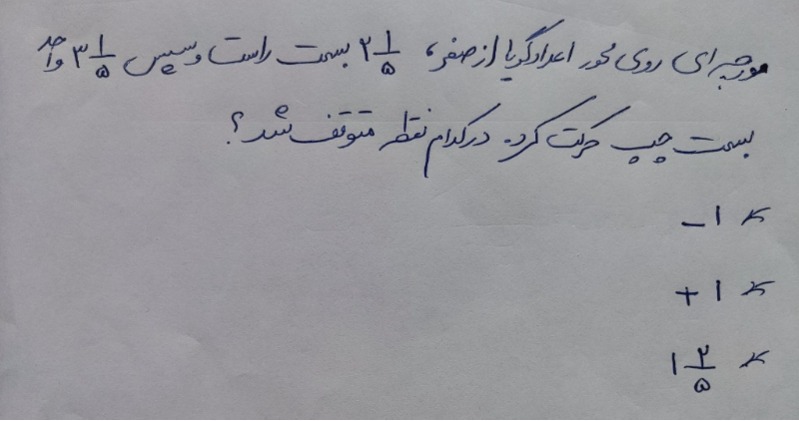 مورچه‌ای روی محور اعداد گویا از صفر، ۲ ۱/۵ بسمت راست و سپس ۳ ۱/۵ واحد
بسمت چپ حرکت کرد. در کدام نقطه متوقف شد؟
* ۱ −
* ۱ +
* ۱ ۲/۵